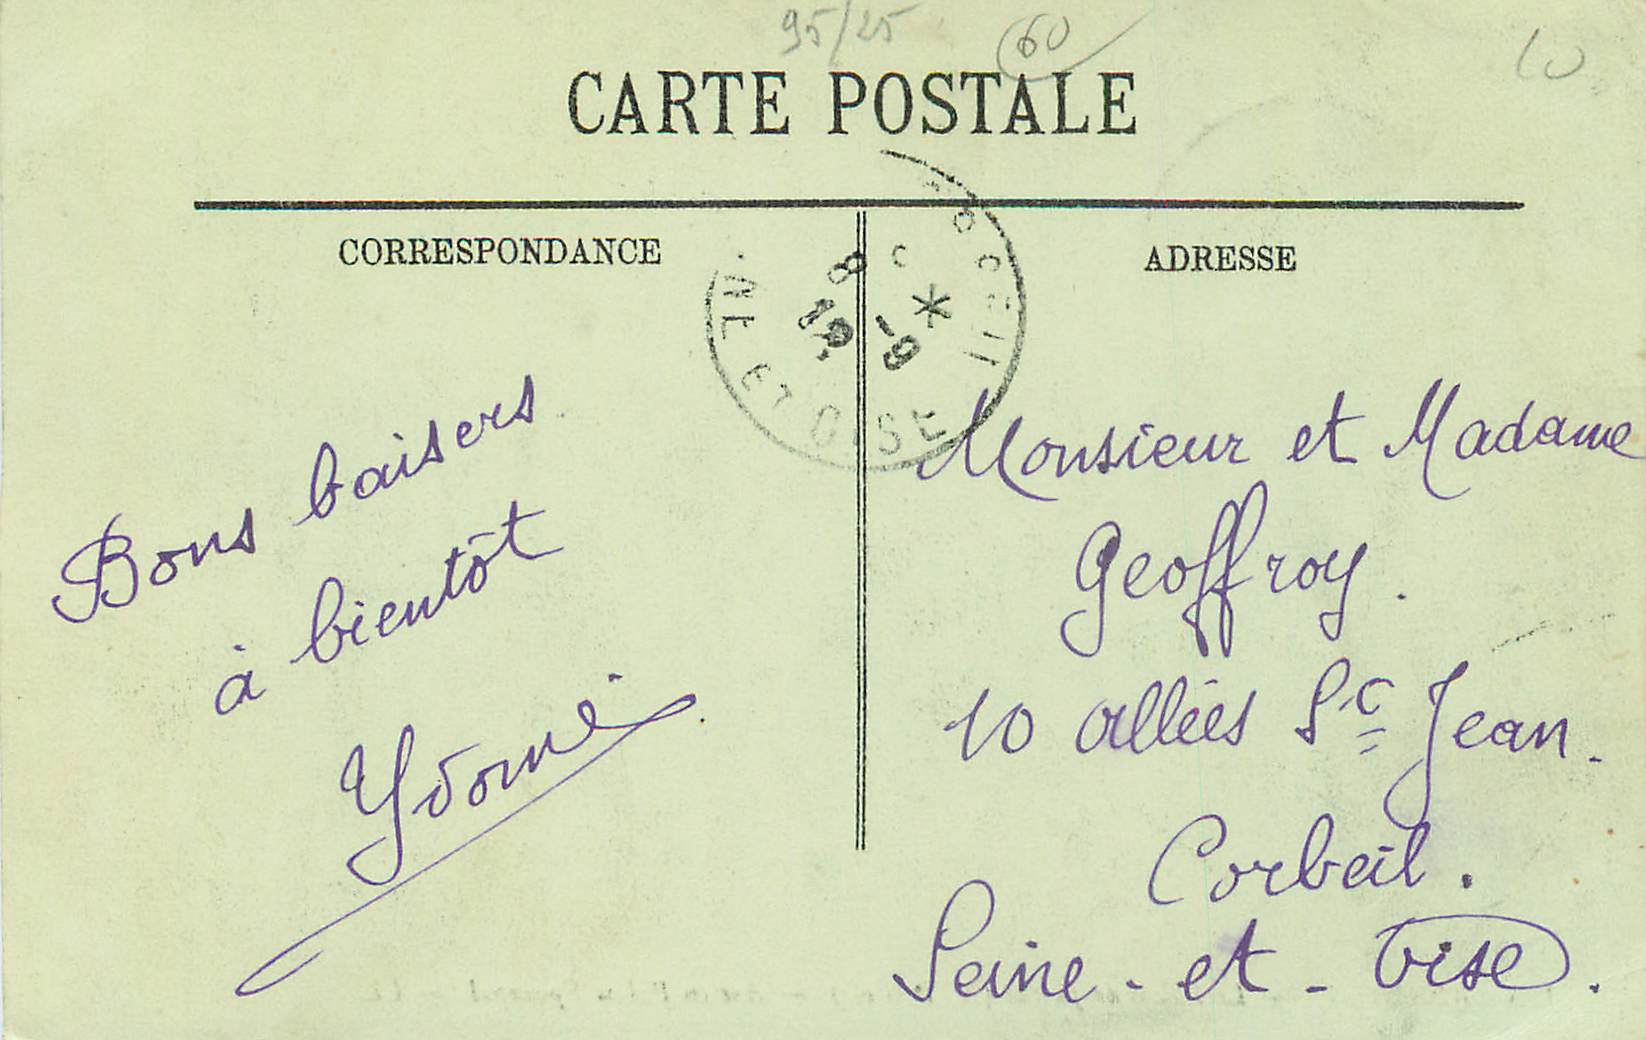 95/25 60
CARTE POSTALE
CORRESPONDANCE
ADRESSE
8 - 9
ET OISE
Bons baisers
à bientôt
Yvonne
Monsieur et Madame
Geoffroy.
10 allées St Jean.
Corbeil.
Seine-et-Oise.